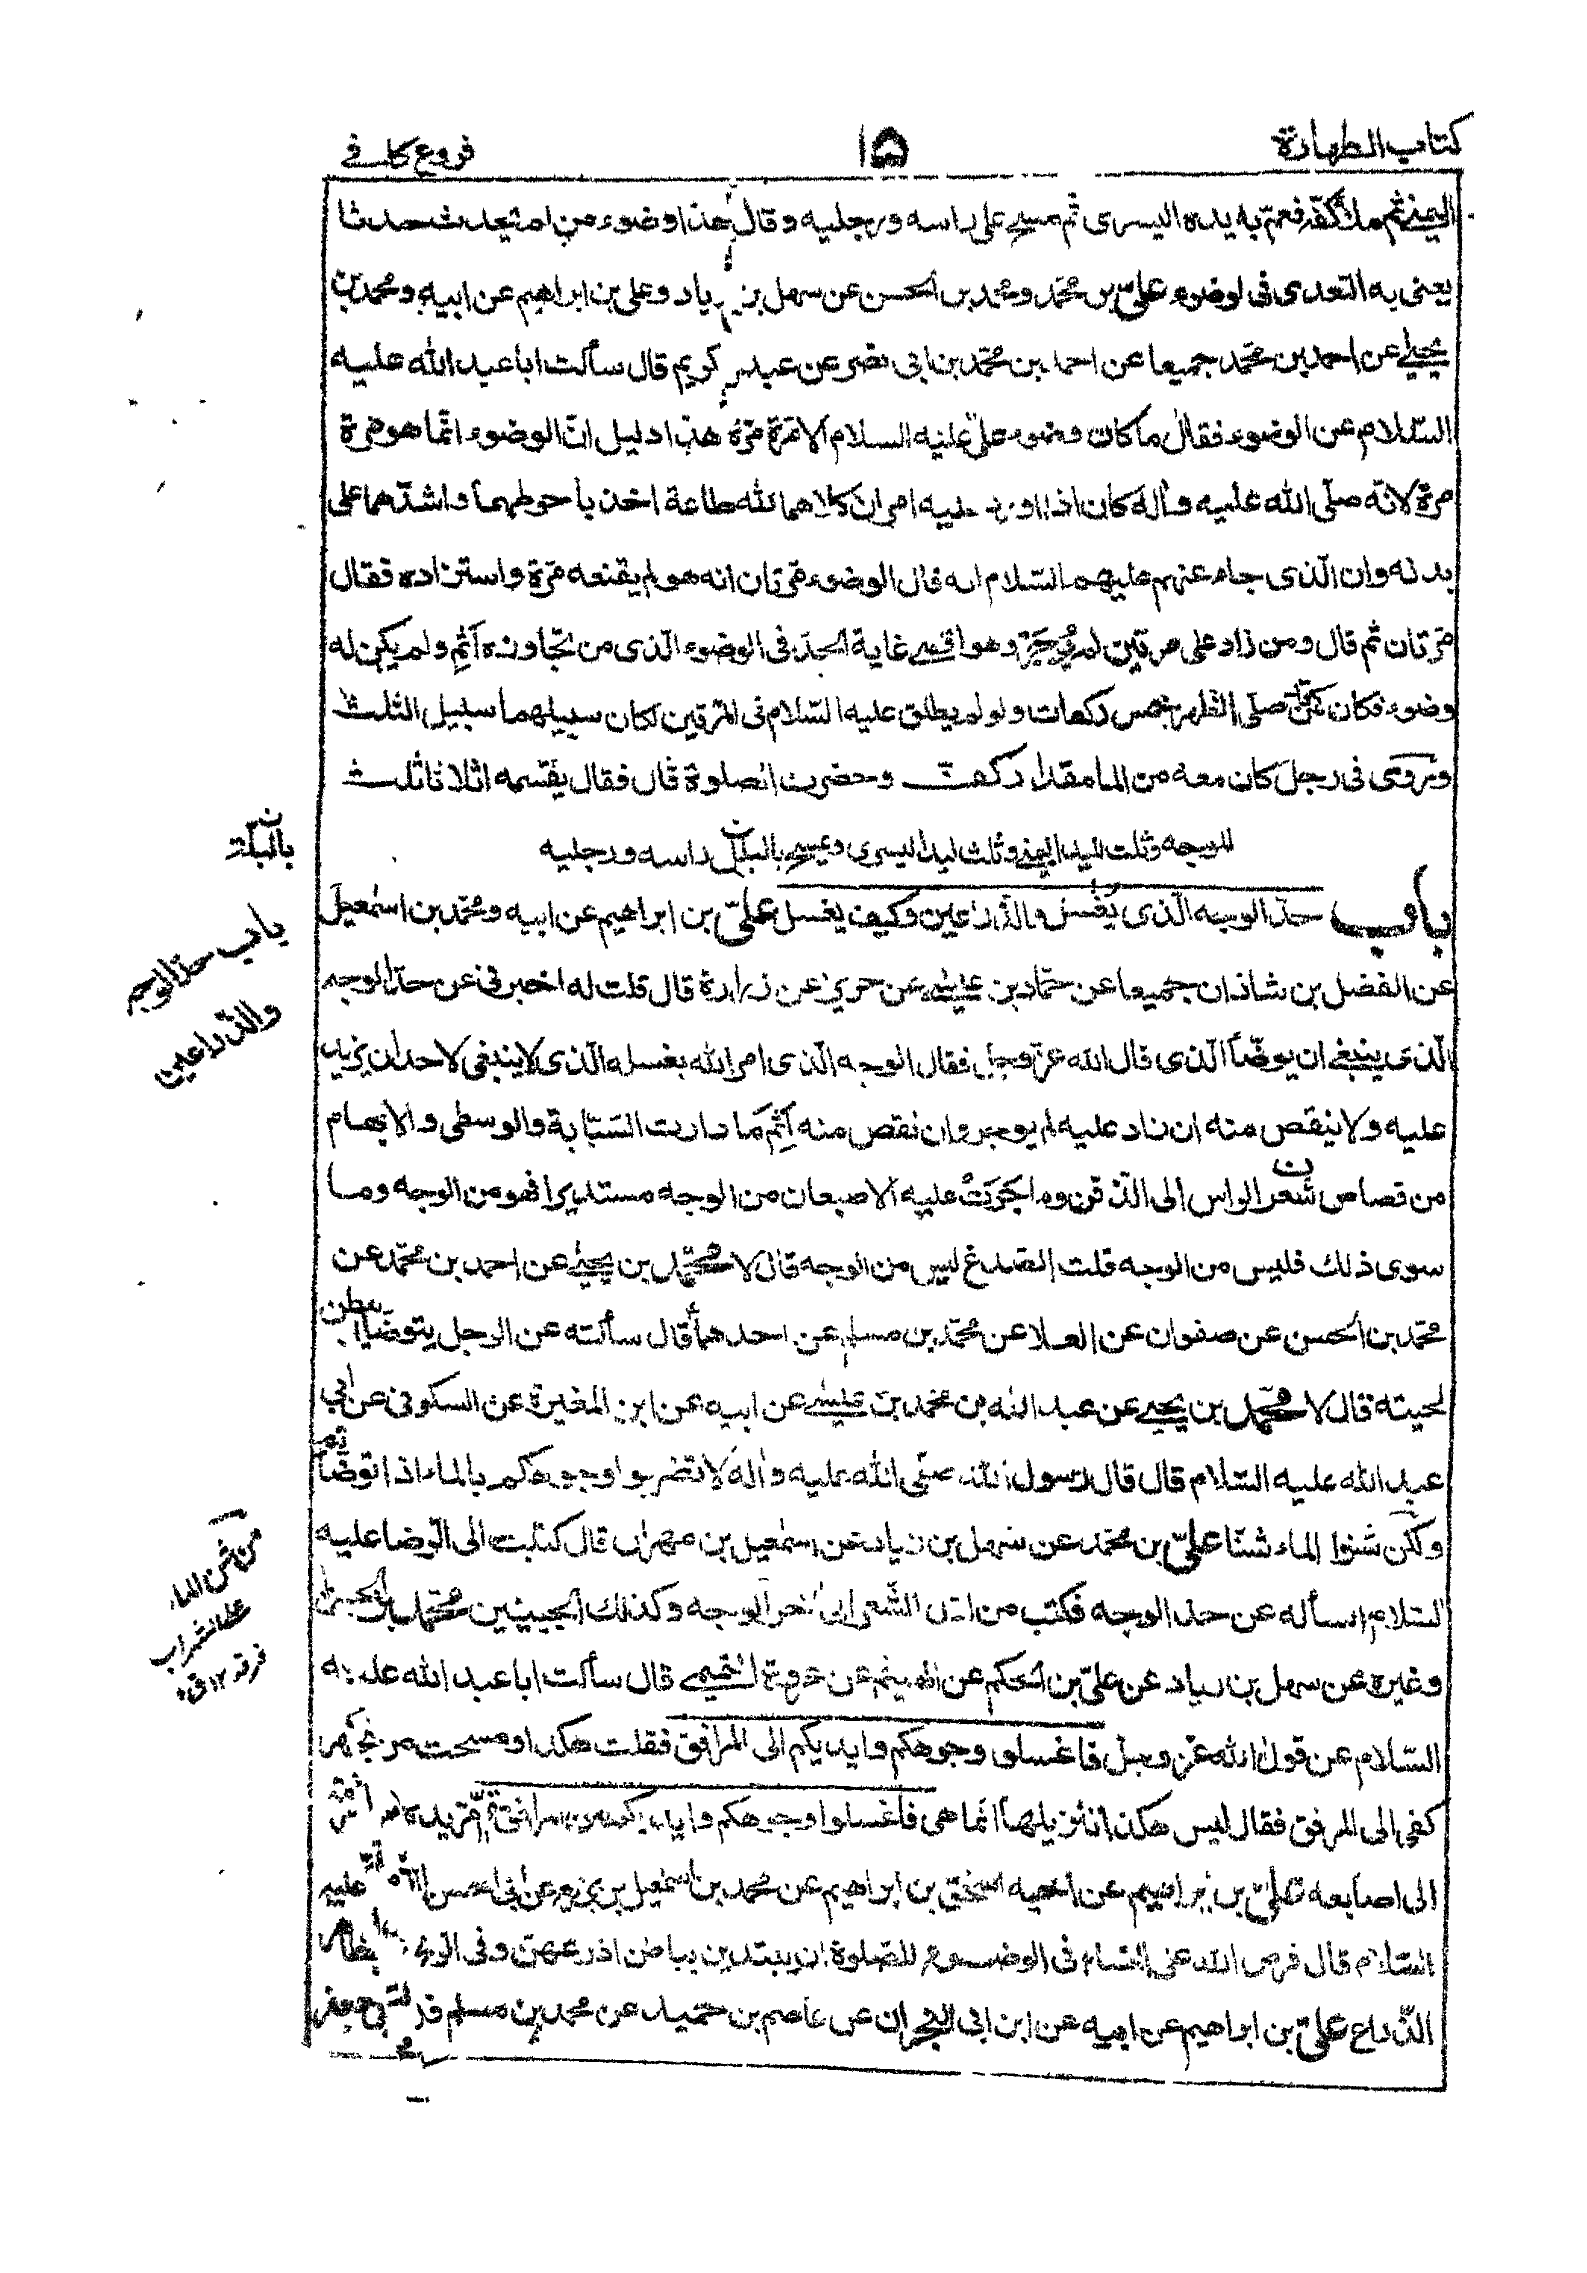 كتاب الطهارة
١٥
فروع كافي
اليمنى ثم ملأ كفه فعمّ به يده اليسرى ثم مسح على راسه ورجليه وقال هذا وضوء من لم يحدث حدثا
يعنى به التعدى فى الوضوء علىّ بن محمّد ومحمد بن الحسن عن سهل بن زياد وعلى بن ابراهيم عن ابيه ومحمد بن
يحيى عن احمد بن محمّد جميعا عن احمد بن محمّد بن ابى نصر عن عبد الكريم قال سألت ابا عبد الله عليه
السّلام عن الوضوء فقال ما كان وضوء علىّ عليه السلام الا مرّة مرّة هذا دليل انّ الوضوء انّما هو مرة
مرة لانّه صلّى الله عليه وآله كان اذا ورد عليه امران كلاهما لله طاعة اخذ باحوطهما واشدّهما على
بدنه وان الّذى جاء عنهم عليهم السّلام انه قال الوضوء مرّتان انه هو لم يقنعه مرّة واستزاده فقال
مرّتان ثم قال ومن زاد على مرتين لم يؤجر وهو اقصى غاية الحدّ فى الوضوء الّذى من تجاوزه آثم ولم يكن له
وضوء فكان كمن صلّى الظهر خمس ركعات ولو لم يطلق عليه السّلام فى المرّتين لكان سبيلهما سبيل الثلث
وروى فى رجل كان معه من الما مقدار كفّ وحضرت الصلوة قال فقال يقسمه اثلاثا ثلث
للوجه وثلث لليد اليمنى وثلث لليد اليسرى ويمسح بالبلل راسه ورجليه
باب حدّ الوجه الّذى يغسل والذّراعين وكيف يغسل علىّ بن ابراهيم عن ابيه ومحمّد بن اسمٰعيل
عن الفضل بن شاذان جميعا عن حمّاد بن عيسى عن حريز عن زرارة قال قلت له اخبرنى عن حدّ الوجه
الّذى ينبغى ان يوضّأ الّذى قال الله عزّ وجل فقال الوجه الّذى امر الله بغسله الّذى لا ينبغى لاحد ان يزيد
عليه ولا ينقص منه ان زاد عليه لم يوجر وان نقص منه آثم ما دارت السّبّابة والوسطى والابهام
من قصاص شعر الراس الى الذّقن وما جرت عليه الاصبعان من الوجه مستديرا فهو من الوجه وما
سوى ذلك فليس من الوجه قلت الصّدغ ليس من الوجه قال لا محمّد بن يحيى عن احمد بن محمّد عن
محمّد بن الحسن عن صفوان عن العلا عن محمّد بن مسلم عن احدهما قال سألته عن الرجل يتوضّأ ابطن
لحيته قال لا محمّد بن يحيى عن عبد الله بن محمد بن عيسى عن ابيه عن ابن المغيرة عن السكونى عن ابى
عبد الله عليه السّلام قال قال رسول الله صلّى الله عليه وآله لا تضربوا وجوهكم بالماء اذا توضّأتم
ولكن شنوا الماء شنّا علىّ بن محمّد عن سهل بن زياد عن اسمٰعيل بن مهران قال كتبت الى الرّضا عليه
السّلام اسأله عن حد الوجه فكتب من اول الشّعر الى آخر الوجه وكذلك الجبينين محمّد بن الحسن
وغيره عن سهل بن زياد عن علىّ بن الحكم عن الهيثم عن عروة التميمى قال سألت ابا عبد الله عليه
السّلام عن قول الله عزّ وجلّ فاغسلوا وجوهكم وايديكم الى المرافق فقلت هكذا ومسحت من ظهر
كفى الى المرفق فقال ليس هكذا تنزيلها انّما هى فاغسلوا وجوهكم وايديكم من المرافق ثم امرّ يده من مرفقه
الى اصابعه علىّ بن ابراهيم عن اخيه اسحٰق بن ابراهيم عن محمد بن اسمٰعيل بن بزيع عن ابى الحسن الرضا عليه
السّلام قال فرض الله على النّساء فى الوضوء للصّلوة ان يبتدين بباطن اذرعهنّ وفى الرجال بظاهر
الذّراع علىّ بن ابراهيم عن ابيه عن ابن ابى نجران عن عاصم بن حميد عن محمد بن مسلم عن ابى جعفر
بالبلّة
باب حدّ الوجه
والذّراعين
من شن الماء
على الشراب
فرقه ١٢ ق